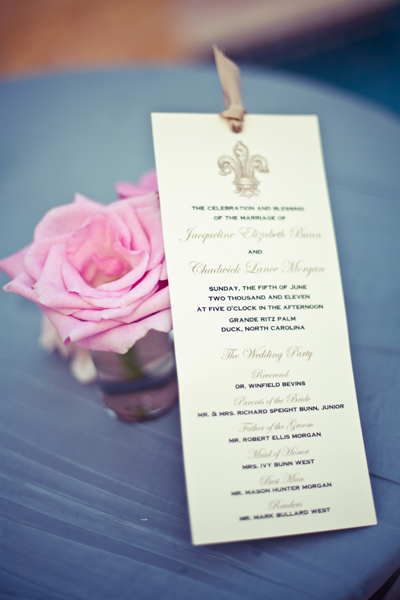 THE CELEBRATION AND BLESSING
OF THE MARRIAGE OF
Jacqueline Elizabeth Bunn
AND
Chadwick Lance Morgan
SUNDAY, THE FIFTH OF JUNE
TWO THOUSAND AND ELEVEN
AT FIVE O'CLOCK IN THE AFTERNOON
GRANDE RITZ PALM
DUCK, NORTH CAROLINA
The Wedding Party
Reverend
DR. WINFIELD BEVINS
Parents of the Bride
MR. & MRS. RICHARD SPEIGHT BUNN, JUNIOR
Father of the Groom
MR. ROBERT ELLIS MORGAN
Maid of Honor
MRS. IVY BUNN WEST
Best Man
MR. MASON HUNTER MORGAN
Readers
MR. MARK BULLARD WEST